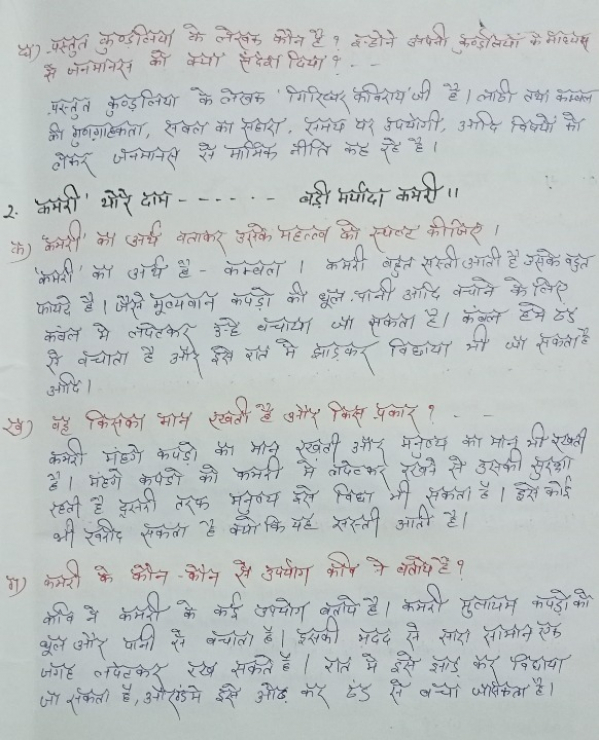 घ) प्रस्तुत कुण्डलिया के लेखक कौन है ? इन्होंने अपनी कुण्डलियों के माध्यम
से जनमानस को क्या संदेश दिया ? - -
प्रस्तुत कुण्डलिया के लेखक 'गिरिधर कविराय जी है। लाठी तथा कम्बल
की गुणग्राहकता, सबल का सहारा, समय पर उपयोगी, आदि विषयों को
लेकर जनमानस से मार्मिक नीति कह रहे है।
2. 'कमरी' थोरे दाम - - - - - - बड़ी मर्यादा कमरी।।
क) 'कमरी' का अर्थ बताकर उसके महत्त्व को स्पष्ट कीजिए।
'कमरी' का अर्थ है - कम्बल। कमरी बहुत सस्ती आती है उसके बहुत
फायदे है। जैसे मूल्यवान कपड़ो की धूल, पानी आदि बचाने के लिए
कंबल में लपेटकर उन्हें बचाया जा सकता है। कंबल हमें ठंड
से बचाता है और इसे रात में झाड़कर बिछाया भी जा सकता है
आदि।
ख) वह किसका मान रखती है और किस प्रकार ? - -
कमरी मंहगे कपड़ो का मान रखती और मनुष्य का मान भी रखती
है। मंहगे कपड़ो को कमरी में लपेटकर रखने से उसकी सुरक्षा
रहती है दूसरी तरफ मनुष्य इसे बिछा भी सकता है। इसे कोई
भी खरीद सकता है क्यों कि यह सस्ती आती है।
ग) कमरी के कौन-कौन से उपयोग कवि ने बताये है ?
कवि ने कमरी के कई उपयोग बताये है। कमरी मुलायम कपड़ो को
धूल और पानी से बचाता है। इसकी मदद से सारा सामान एक
जगह लपेटकर रख सकते है। रात में इसे झाड़ कर बिछाया
जा सकता है, और ठंड में इसे ओढ़ कर ठंड से बचा जा सकता है।